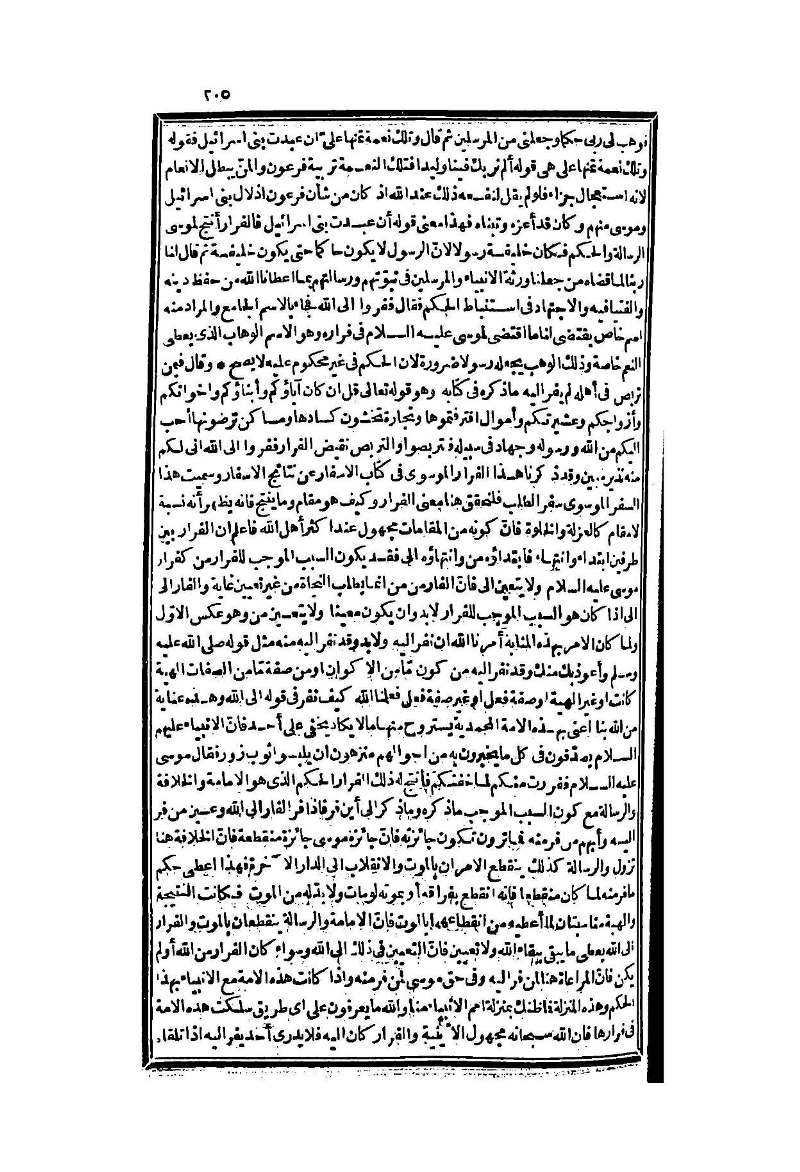 ٢٠٥
فوهب لى ربى حكما وجعلنى من المرسلين ثم قال وتلك نعمة تمنها على ان عبدت بنى اسرائيل فقوله
وتلك نعمة تمنها على هى قوله ألم نربك فينا وليدا فتلك النعمة تربية فرعون والمن يبطل الانعام
لانه استعجال جزاء فلو لم يقل لنفعه ذلك عند الله اذ كان من شأن فرعون اذلال بنى اسرائيل
وموسى منهم وكان قد أعزه وتبناه فهذا معنى قوله أن عبدت بنى اسرائيل فالفرار أنتج لموسى
الرسالة والحكم فكان خليفة رسولا لان الرسول لا يكون حاكما حتى يكون خليفة ثم قال لنا
ربنا لما قضاه من جعلنا ورثة الانبياء والمرسلين فى نبوتهم ورسالتهم بما اعطانا الله من حفظ دينه
والفتيا فيه والاجتهاد فى استنباط الحكم فقال ففروا الى الله فجاء بالاسم الجامع والمراد منه
اسم خاص يقتضى لنا ما اقتضى لموسى عليه السلام فى فراره وهو الاسم الوهاب الذى يعطى
النعم خاصة وذلك الوهب يجعله رسولا ضرورة لان الحكم فى غير محكوم عليه لا يصح * وقال فيمن
تربص فى أهله لم يفر اليه ما ذكره فى كتابه وهو قوله تعالى قل ان كان آباؤكم وأبناؤكم واخوانكم
وأزواجكم وعشيرتكم وأموال اقترفتموها وتجارة تخشون كسادها ومساكن ترضونها أحب
اليكم من الله ورسوله وجهاد فى سبيله فتربصوا والتربص نقيض الفرار ففروا الى الله انى لكم
منه نذير مبين وقد ذكرنا هذا الفرار الموسوى فى كتاب الاسفار عن نتائج الاسفار وسميت هذا
السفر الموسوى سفر الطلب فلنحقق هنا معنى الفرار وكيف هو مقام وما ينتج فانه يظهر أنه نسبة
لا مقام كالعزلة والخلوة فان كونه من المقامات مجهول عند أكثر أهل الله فاعلم ان الفرار بين
طرفين ابتداء وانتهاء فابتداؤه من وانتهاؤه الى فقد يكون السبب الموجب للفرار من كفرار
موسى عليه السلام ولا يتعين الى فان الفار من من انما يطلب النجاة من غير تعيين غاية والفار الى
الى اذا كان هو السبب الموجب للفرار لا بد وان يكون معينا ولا يتعين من وهو عكس الاول
ولما كان الامر بهذه المثابة أمرنا الله ان نفر اليه ولا بد وقد نفر اليه منه مثل قوله صلى الله عليه
وسلم وأعوذ بك منك وقد نفر اليه من كون تا من الاكوان او من صفة تا من الصفات الهية
كانت او غير الهية او صفة فعل أو غير صفة فعل فعلمنا الله كيف نفر فى قوله الى الله وهذه عناية
من الله بنا أعنى بهذه الامة المحمدية يستروح منها ما لا يكاد يخفى على أحد فان الانبياء عليهم
السلام يصدقون فى كل ما يخبرون به من احوالهم منزهون ان يلبسوا ثوب زور فقال موسى
عليه السلام ففررت منكم لما خفتكم فأنتج له ذلك الفرار الحكم الذى هو الامامة والخلافة
والرسالة مع كون السبب الموجب ما ذكره وما ذكر الى أين فر فاذا فر الفار الى الله وعين من فر
اليه وأبهم من فر منه فما ترون تكون جائزته فان جائزة موسى جائزة منقطعة فان الخلافة هنا
تزول والرسالة كذلك ينقطع الامر ان بالموت والانقلاب الى الدار الآخرة فهذا اعطى حكم
ما فر منه لما كان منقطعا فانه انقطع بفراقه أو بموته لو مات ولا بد له من الموت فكانت النتيجة
والهبة مناسبتان لما أعطيه ومن انقطاعهما بالموت فان الامامة والرسالة ينقطعان بالموت والفرار
الى الله يعطى ما يبقى ببقاء الله ولا تعيين فان التعيين فى ذلك الى الله وسواء كان الفرار من الله أو لم
يكن فان المراعاة هنا لمن فر اليه وفى حق موسى لمن فر منه واذا كانت هذه الامة مع الانبياء بهذا
الحكم وهذه المنزلة فما ظنك بمنزلة امم الانبياء منا والله ما يعرفون على اى طريق سلكت هذه الامة
فى فرارها فان الله سبحانه مجهول الاينية والفرار كان اليه فلا يدرى أحد يفر اليه اذا تلقاه